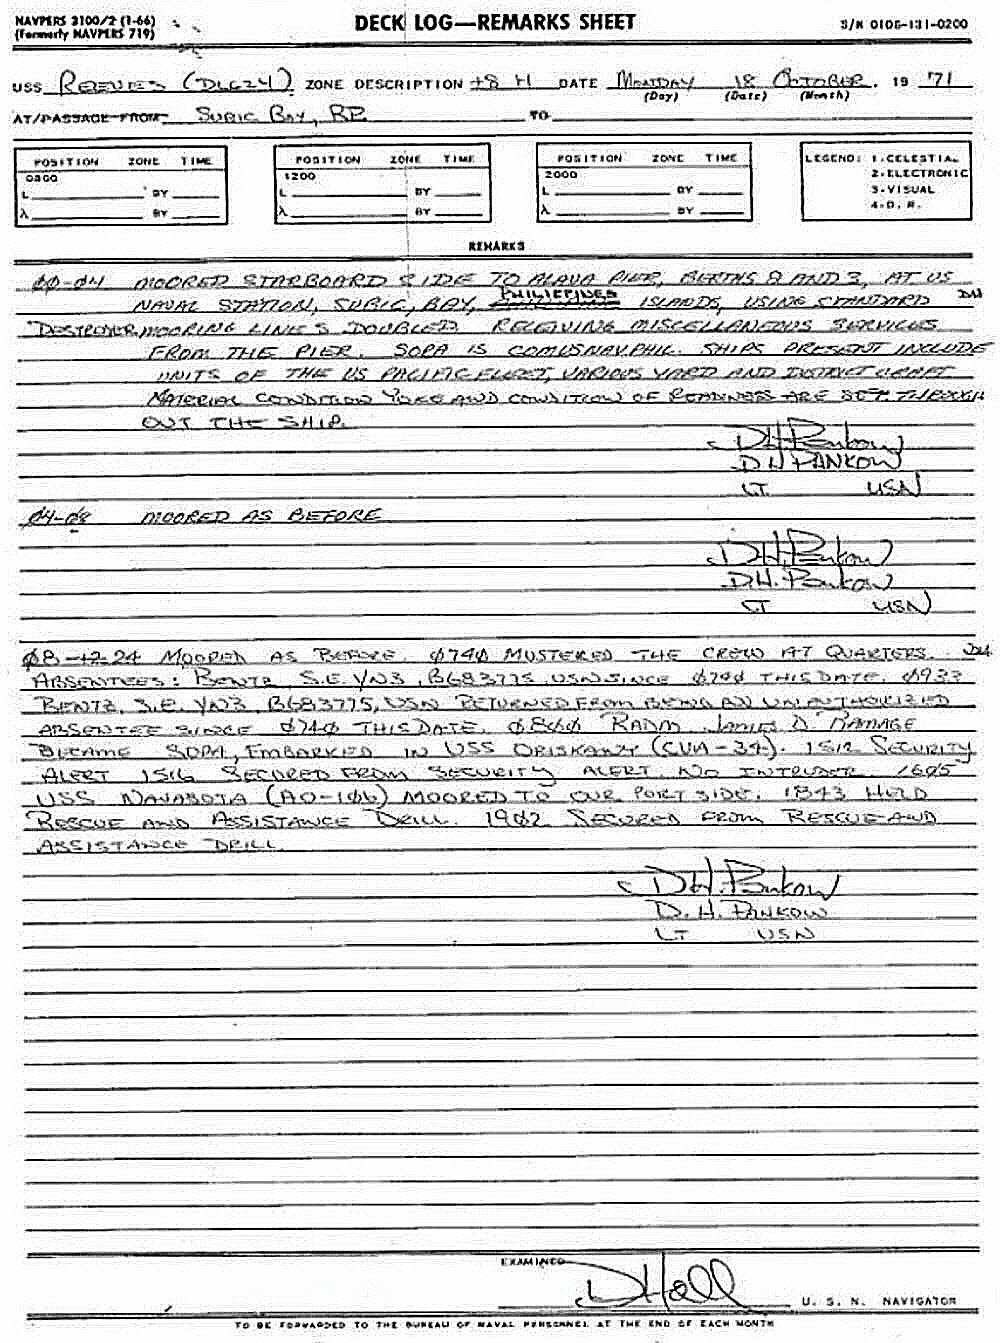 NAVPERS 3100/2 (1-66)
(Formerly NAVPERS 719)
DECK LOG—REMARKS SHEET
S/N 0105-131-0200
USS REEVES (DLG24) ZONE DESCRIPTION +8 H DATE MONDAY 18 OCTOBER, 19 71
(Day) (Date) (Month)
AT/PASSAGE FROM SUBIC BAY, RP TO
POSITION ZONE TIME
0800
L BY
λ BY
POSITION ZONE TIME
1200
L BY
λ BY
POSITION ZONE TIME
2000
L BY
λ BY
LEGEND: 1-CELESTIAL
2-ELECTRONIC
3-VISUAL
4-D. R.
REMARKS
ØØ-Ø4 MOORED STARBOARD SIDE TO ALAVA PIER, BERTHS 2 AND 3, AT US
NAVAL STATION, SUBIC, BAY, PHILIPPINES ISLANDS, USING STANDARD
DESTROYER MOORING LINES DOUBLED. RECEIVING MISCELLANEOUS SERVICES
FROM THE PIER. SOPA IS COMUSNAVPHIL. SHIPS PRESENT INCLUDE
UNITS OF THE US PACIFIC FLEET, VARIOUS YARD AND DISTRICT CRAFT
MATERIAL CONDITION YOKE AND CONDITION OF READINESS ARE SET THROUGH
OUT THE SHIP.
D.H. Pankow
D H PANKOW
LT USN
Ø4-Ø8 MOORED AS BEFORE
D.H. Pankow
D.H. Pankow
LT USN
Ø8-12-24 MOORED AS BEFORE. Ø74Ø MUSTERED THE CREW AT QUARTERS.
ABSENTEES: BENTZ, S.E. YN3, B683775, USN SINCE Ø74Ø THIS DATE. Ø933
BENTZ, S.E. YN3, B683775, USN RETURNED FROM BEING AN UNAUTHORIZED
ABSENTEE SINCE Ø74Ø THIS DATE. Ø8ØØ RADM JAMES D. RAMAGE
BECAME SOPA, EMBARKED IN USS ORISKANY (CVA-34). 1512 SECURITY
ALERT 1516 SECURED FROM SECURITY ALERT. NO INTRUDER. 1605
USS NAVASOTA (AO-106) MOORED TO OUR PORT SIDE. 1843 HELD
RESCUE AND ASSISTANCE DRILL. 19Ø2 SECURED FROM RESCUE AND
ASSISTANCE DRILL.
D.H. Pankow
D. H. PANKOW
LT USN
EXAMINED
D Hall
U. S. N. NAVIGATOR
TO BE FORWARDED TO THE BUREAU OF NAVAL PERSONNEL AT THE END OF EACH MONTH